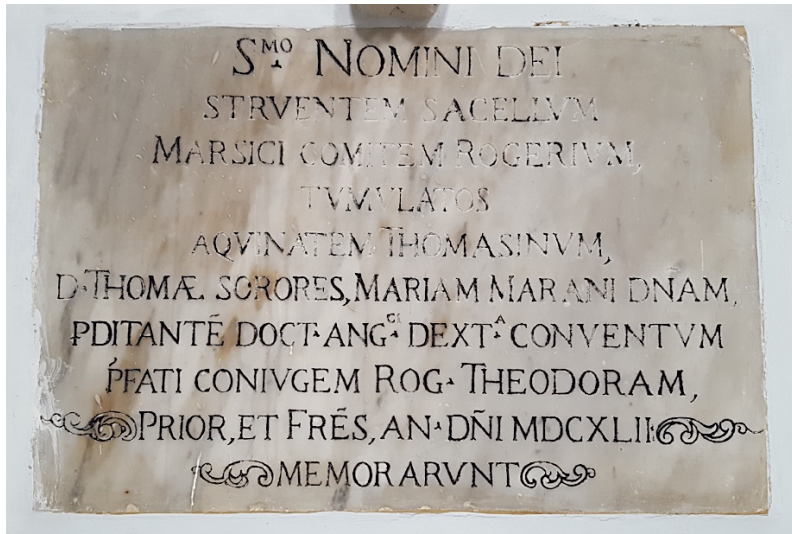 SMO NOMINI DEI
STRVENTEM SACELLVM
MARSICI COMITEM ROGERIVM,
TVMVLATOS
AQVINATEM THOMASINVM,
D·THOMÆ SORORES, MARIAM MARANI DNAM,
PDITANTĒ DOCT·ANG·CI DEXT·A CONVENTVM
P̄FATI CONIVGEM ROG·THEODORAM,
PRIOR, ET FRĒS, AN·DN̄I MDCXLII
MEMORARVNT